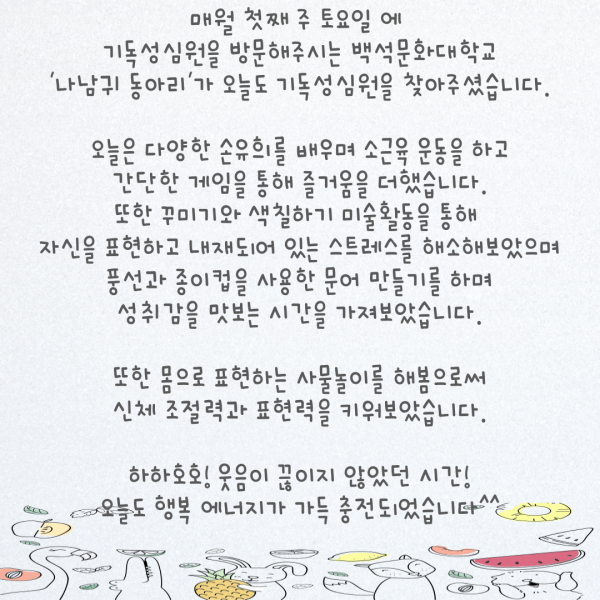 매월 첫째 주 토요일 에
기독성심원을 방문해주시는 백석문화대학교
'나남귀 동아리'가 오늘도 기독성심원을 찾아주셨습니다.
오늘은 다양한 손유희를 배우며 소근육 운동을 하고
간단한 게임을 통해 즐거움을 더했습니다.
또한 꾸미기와 색칠하기 미술활동을 통해
자신을 표현하고 내재되어 있는 스트레스를 해소해보았으며
풍선과 종이컵을 사용한 문어 만들기를 하며
성취감을 맛보는 시간을 가져보았습니다.
또한 몸으로 표현하는 사물놀이를 해봄으로써
신체 조절력과 표현력을 키워보았습니다.
하하호호! 웃음이 끊이지 않았던 시간!
오늘도 행복 에너지가 가득 충전되었습니다^^